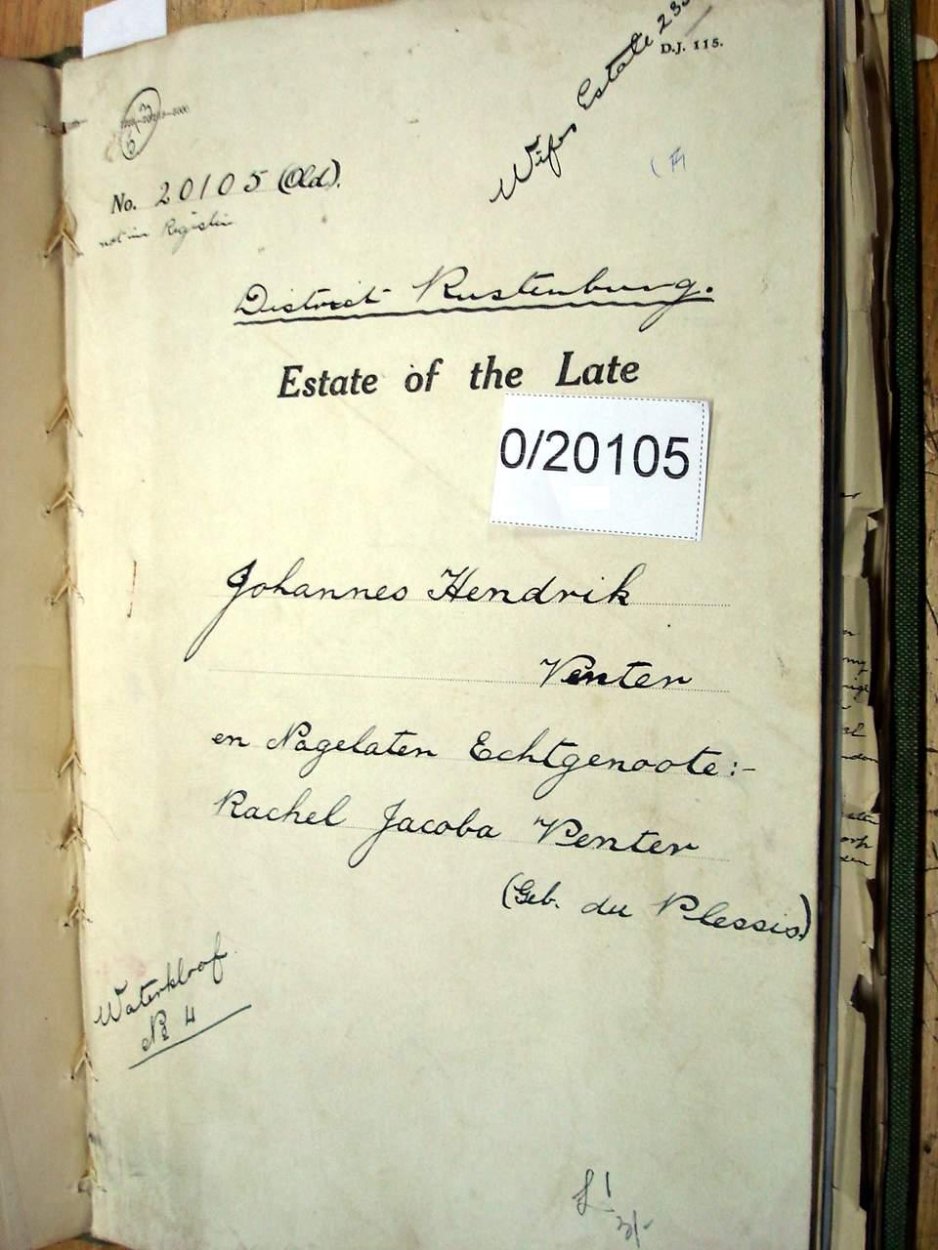 D.J. 115.
Wifes Estate 23
No. 20105 (Old).
not in Register
District Rustenburg.
Estate of the Late
0/20105
Johannes Hendrik
Venter
en Nagelaten Echtgenoote:-
Rachel Jacoba Venter
(Geb. du Plessis)
Waterkloof
No 4
£1
3/-